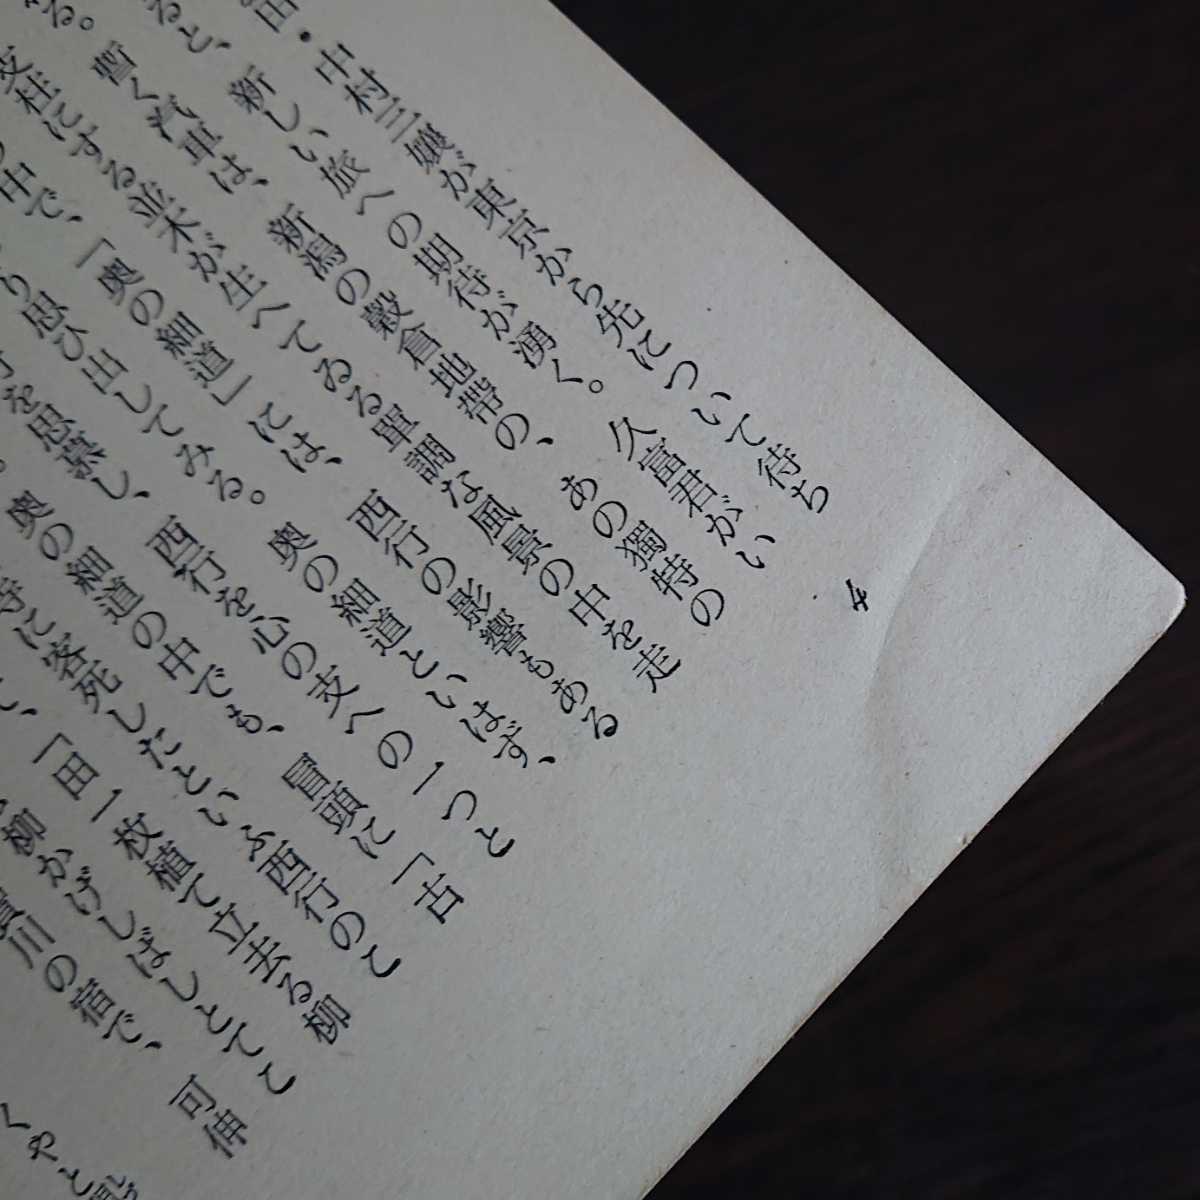 ・中村三嬢が東京から先について待ち
ると、新しい旅への期待が湧く。久富君がい
る。暫く汽車は、新潟の穀倉地帶の、あの獨特の
支柱にする並木が生へてゐる單調な風景の中を走
中で、「奥の細道」には、西行の影響もある
り思ひ出してみる。奥の細道といはず、
を思慕し、西行を心の支への一つと
。奥の細道の中でも、冒頭に「古
寺に客死したといふ西行のこ
、「田一枚植て立去る柳
柳かげしばしとてこ
川の宿で、可伸
くやと
4